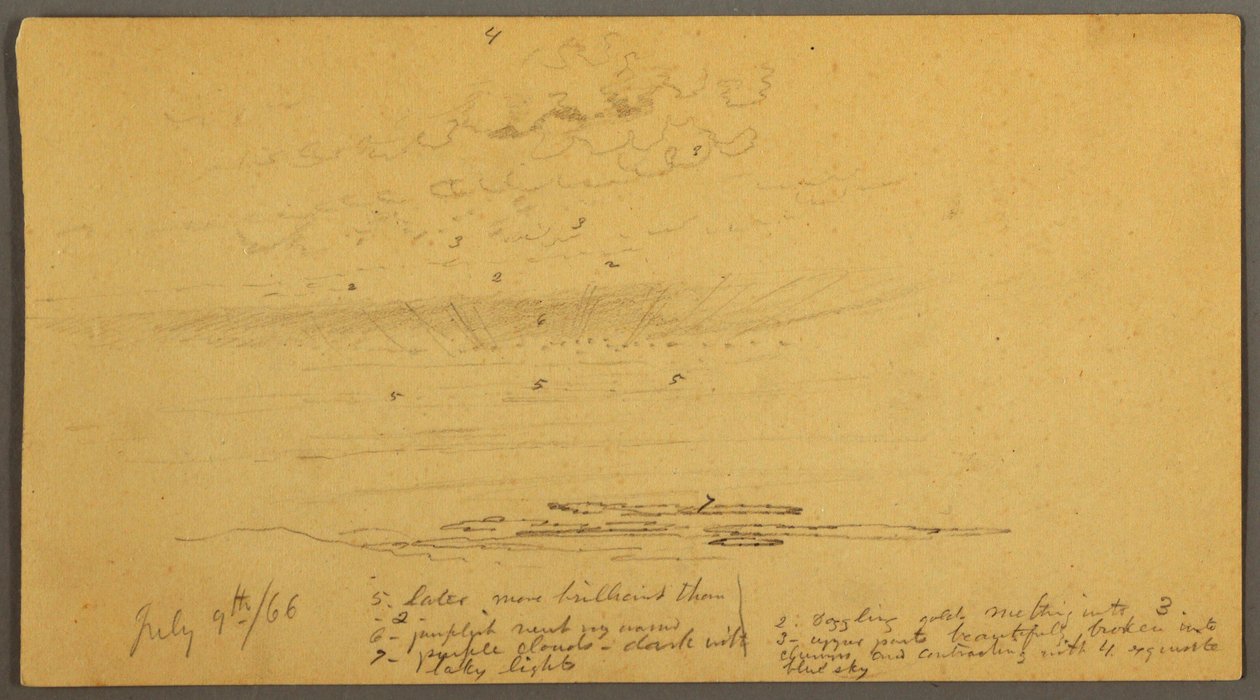 4
3
3
3
2
2
2
6
5
5
5
7
July 9th/66
5. Later more brilliant than
- 2 -
6 - purplish
7 - purple clouds - dark with
flaky lights
2: gold melting into 3.
3 - upper parts beautifully broken into
and contrasting with 4. exquisite
blue sky